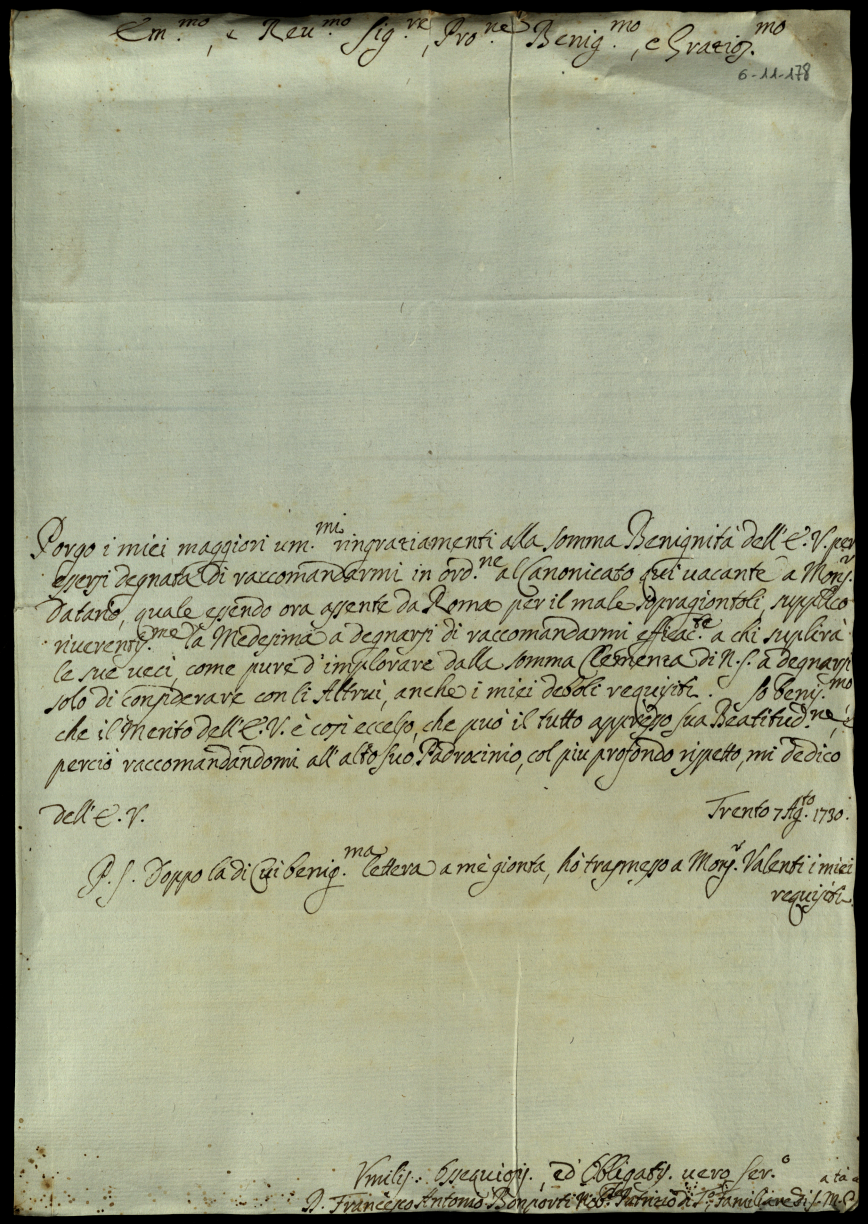 Em.mo, e Reu.mo Sig.re, Pro.ne Benig.mo, e Grazios.mo
6-11-178
Porgo i miei maggiori um.mi ringraziamenti alla somma Benignità dell'E.V. per
essersi degnata di raccomandarmi in ord.ne al Canonicato qui vacante a Mons.r
Datario, quale essendo ora assente da Roma per il male sopragiontoli, supplico
riverentis.me la Medesima a degnarsi di raccomandarmi efficac.te a chi suplirà
le sue ueci, come pure d'implorare dalla somma Clemenza di N.S. a degnarsi
solo di considerare con li Altrui, anche i miei deboli requisiti. So benis.mo
che il Merito dell'E.V. è così eccelso, che può il tutto appresso sua Beatitud.ne, e
perciò raccomandandomi all'alto suo Padrocinio, col più profondo rispetto, mi dedico
dell'E.V.
Trento 7 Ag.to 1730.
P.S. Doppo la di Cui benig.ma lettera a mè gionta, hò trasmesso a Mons.r Valenti i miei
requisiti.
Vmilis. Ossequiosis., ed Obligatis. uero Ser.o
D. Francesco Antonio Bonporti Nob. Patrizio di T.o Familiare di S.M.C.